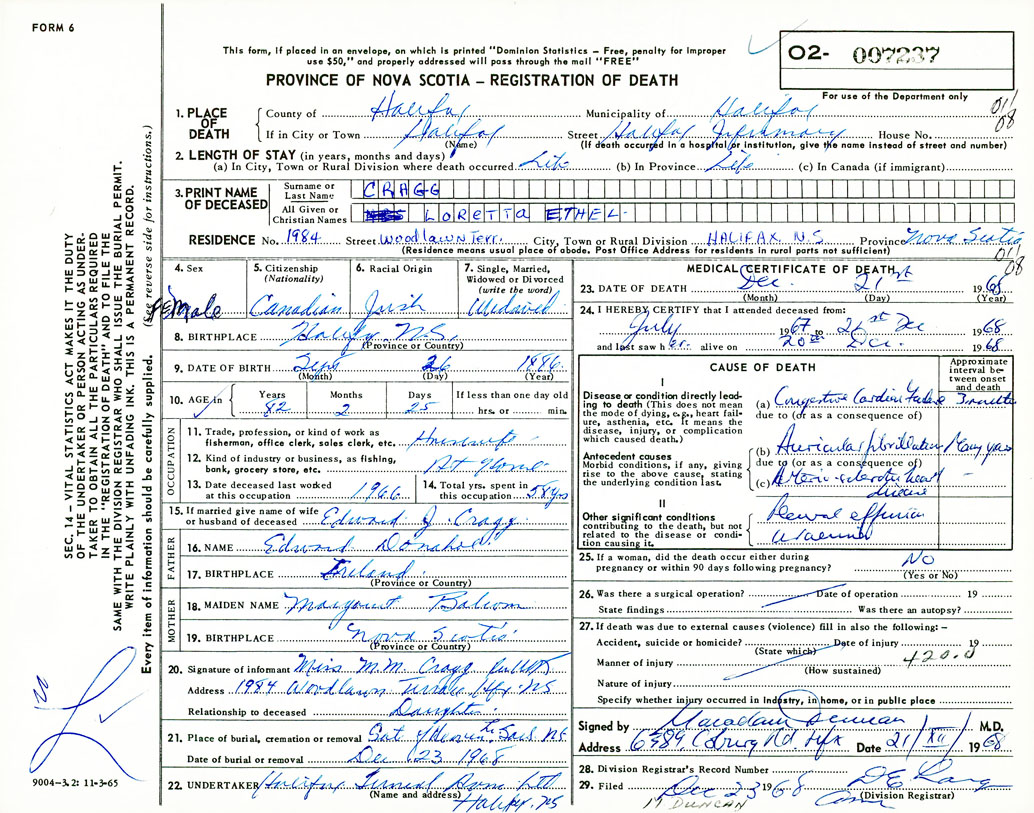 FORM 6
This form, if placed in an envelope, on which is printed "Dominion Statistics – Free, penalty for improper
use $50," and properly addressed will pass through the mail "FREE"
PROVINCE OF NOVA SCOTIA – REGISTRATION OF DEATH
O2- 007237
For use of the Department only
011
08
1. PLACE OF DEATH
County of Halifax Municipality of Halifax
If in City or Town Halifax Street Halifax Infirmary House No.
(Name) (If death occurred in a hospital or institution, give the name instead of street and number)
2. LENGTH OF STAY (in years, months and days)
(a) In City, Town or Rural Division where death occurred Life (b) In Province Life (c) In Canada (if immigrant)
3. PRINT NAME OF DECEASED
Surname or Last Name CRAGG
All Given or Christian Names LORETTA ETHEL
RESIDENCE No. 1984 Street Woodlawn Terr. City, Town or Rural Division HALIFAX N.S Province Nova Scotia
(Residence means usual place of abode. Post Office Address for residents in rural parts not sufficient)
011
08
4. Sex Female
5. Citizenship (Nationality) Canadian
6. Racial Origin Irish
7. Single, Married, Widowed or Divorced (write the word) Widowed
8. BIRTHPLACE Halifax N.S.
(Province or Country)
9. DATE OF BIRTH Sept 26 1886
(Month) (Day) (Year)
10. AGE in Years 82 Months 2 Days 25 If less than one day old hrs. or min.
OCCUPATION
11. Trade, profession, or kind of work as
fisherman, office clerk, sales clerk, etc. Housewife
12. Kind of industry or business, as fishing,
bank, grocery store, etc. At Home
13. Date deceased last worked
at this occupation 1966
14. Total yrs. spent in
this occupation 58 yrs
15. If married give name of wife
or husband of deceased Edward J. Cragg
FATHER
16. NAME Edward Donahoe
17. BIRTHPLACE Ireland
(Province or Country)
MOTHER
18. MAIDEN NAME Margaret Balcom
19. BIRTHPLACE Nova Scotia
(Province or Country)
20. Signature of informant Miss M.M. Cragg
Address 1984 Woodlawn Terrace Hfx. NS
Relationship to deceased Daughter
21. Place of burial, cremation or removal Gate of Heaven Sack NS
Date of burial or removal Dec 23 1968
22. UNDERTAKER Halifax Funeral Home Ltd
(Name and address) Halifax NS
MEDICAL CERTIFICATE OF DEATH
23. DATE OF DEATH Dec. 21st 1968
(Month) (Day) (Year)
24. I HEREBY CERTIFY that I attended deceased from:
July 1967 to 21st Dec 1968
and last saw her alive on 20th Dec. 1968
CAUSE OF DEATH
Approximate interval between onset and death
I
Disease or condition directly leading to death (This does not mean the mode of dying, e.g., heart failure, asthenia, etc. It means the disease, injury, or complication which caused death.)
(a) Congestive Cardiac Failure 3 months
due to (or as a consequence of)
Antecedent causes
Morbid conditions, if any, giving rise to the above cause, stating the underlying condition last.
(b) Auricular fibrillation Many years
due to (or as a consequence of)
(c) Arterio-sclerotic heart
disease
II
Other significant conditions
contributing to the death, but not related to the disease or condition causing it.
Pleural effusion
25. If a woman, did the death occur either during
pregnancy or within 90 days following pregnancy? NO
(Yes or No)
26. Was there a surgical operation? Date of operation 19
State findings Was there an autopsy?
27. If death was due to external causes (violence) fill in also the following: –
Accident, suicide or homicide? Date of injury 19
(State which)
Manner of injury 420.0
(How sustained)
Nature of injury
Specify whether injury occurred in Industry, in home, or in public place
Signed by M.D.
Address 6389 Coburg Rd Hfx Date 21/XII/ 1968
28. Division Registrar's Record Number
29. Filed Dec 23 1968
(Division Registrar)
DUNCAN
SEC. 14 – VITAL STATISTICS ACT MAKES IT THE DUTY
OF THE UNDERTAKER OR PERSON ACTING AS UNDER-
TAKER TO OBTAIN ALL THE PARTICULARS REQUIRED
IN THE "REGISTRATION OF DEATH" AND TO FILE THE
SAME WITH THE DIVISION REGISTRAR WHO SHALL ISSUE THE BURIAL PERMIT.
WRITE PLAINLY WITH UNFADING INK. THIS IS A PERMANENT RECORD.
Every item of information should be carefully supplied. (See reverse side for instructions.)
9004-3.2: 11-3-65